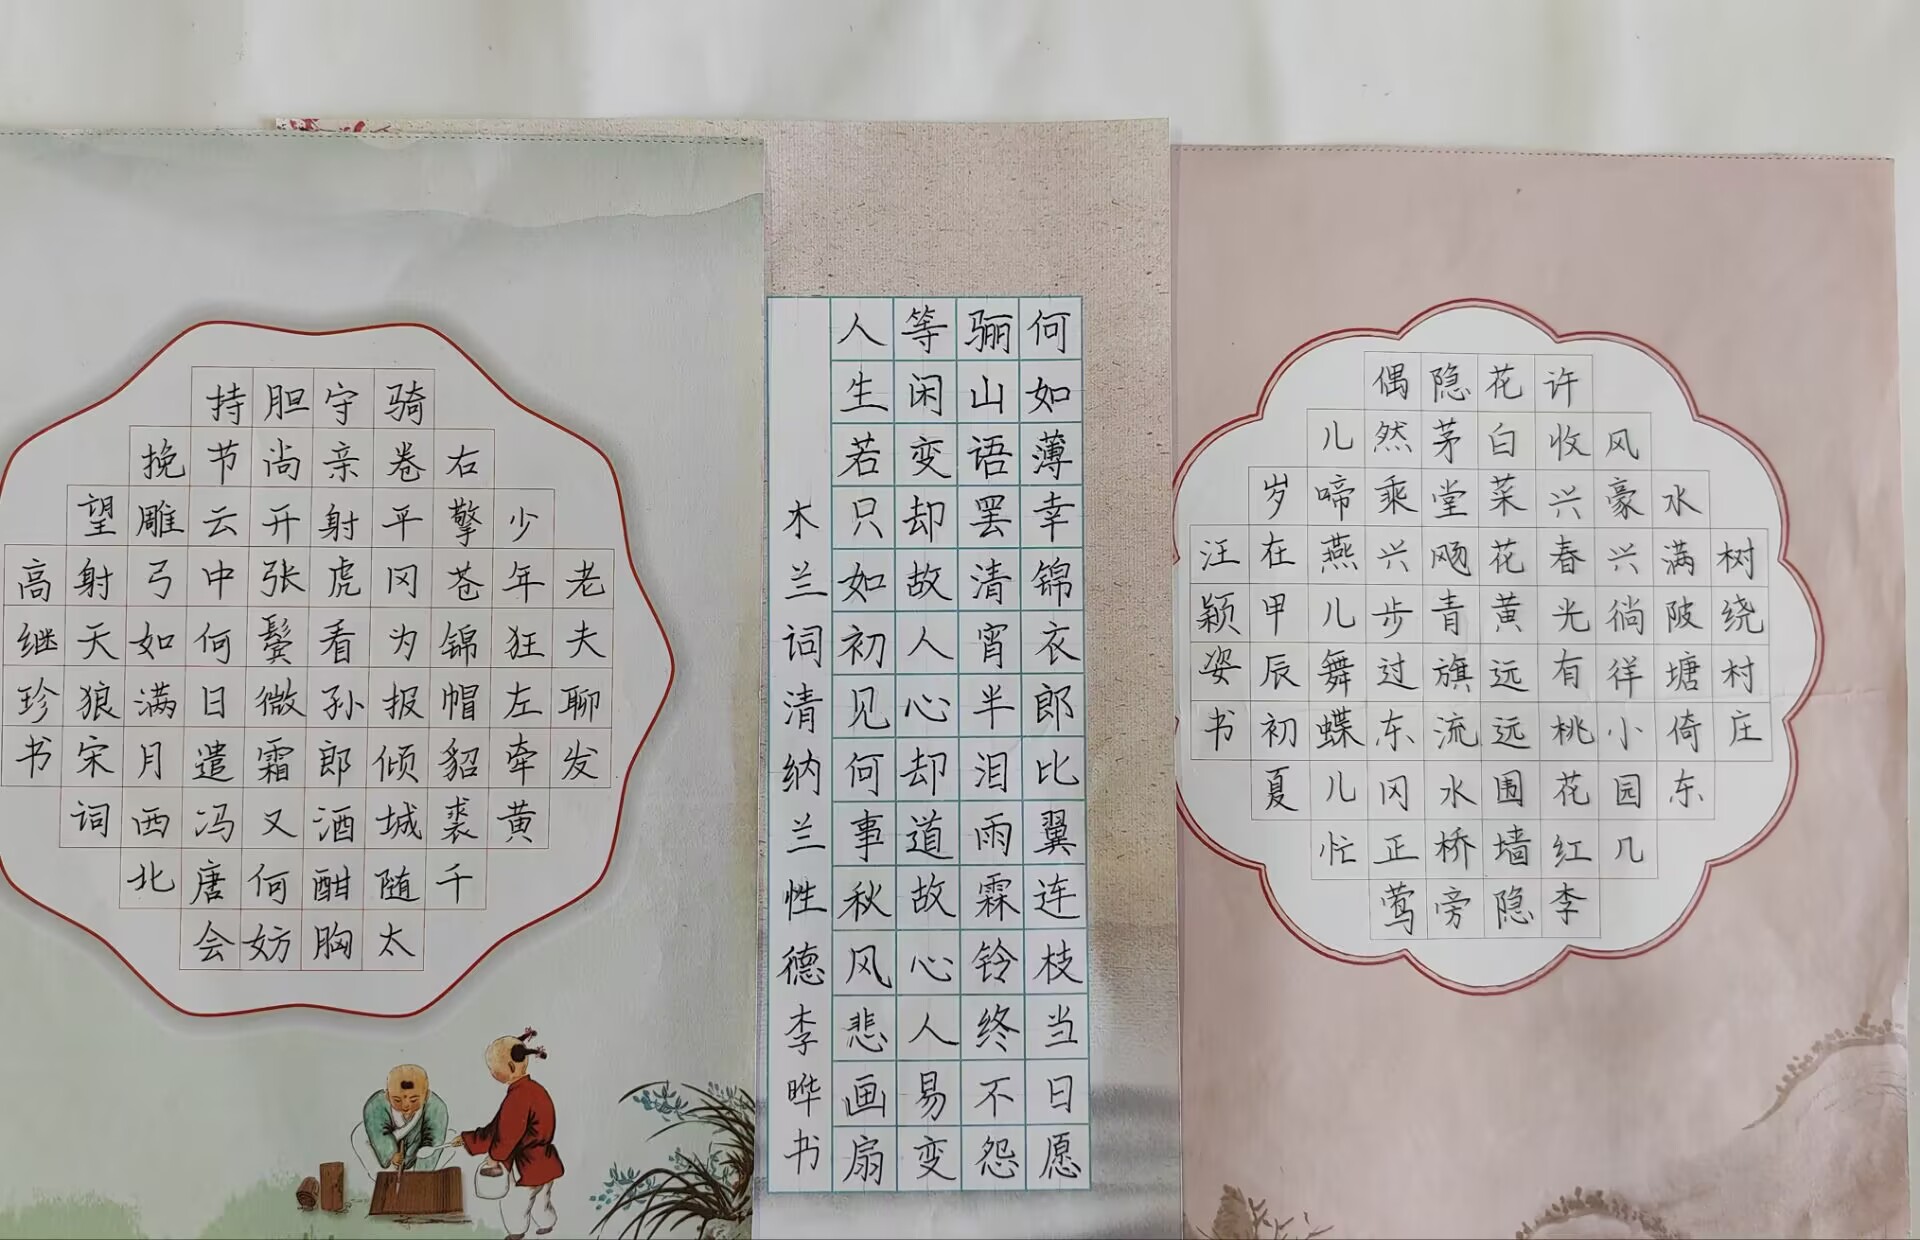 老夫聊发
少年狂左牵黄
右擎苍锦帽貂裘千
骑卷平冈为报倾城随太
守亲射虎看孙郎酒酣胸
胆尚开张鬓微霜又何妨
持节云中何日遣冯唐会
挽雕弓如满月西北
望射天狼宋词
高继珍书
人生若只如初见何事秋风悲画扇
等闲变却故人心却道故心人易变
骊山语罢清宵半泪雨霖铃终不怨
何如薄幸锦衣郎比翼连枝当日愿
木兰词清纳兰性德李晔书
树绕村庄
水满陂塘倚东
风豪兴徜徉小园几
许收兴春光有桃花红李
花白菜花黄远远围墙隐
隐茅堂飏青旗流水桥旁
偶然乘兴步过东冈正莺
儿啼燕儿舞蝶儿忙
岁在甲辰初夏
汪颖姿书